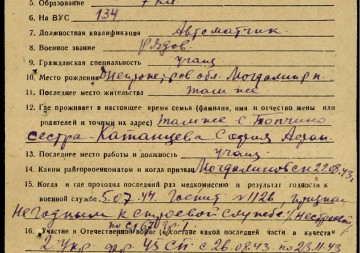 5. Образование 7 кл.
6. На ВУС 134
7. Должностная квалификация Автоматчик
8. Военное звание рядов.
9. Гражданская специальность учащ
10. Место рождения Днепропетров обл. р-н
11. Последнее место жительства там же
12. Где проживает в настоящее время семья (фамилия, имя и отчество жены или
родителей и точный их адрес) там же с. Топчино
сестра - Катанцева София
13. Последнее место работы и должность учащ
14. Каким райгорвоенкоматом и когда призван 22.09.43г.
15. Когда и где проходил последний раз медкомиссию и результат годности к
военной службе 5.07.44. Госпит. № 1126 признан
негодным к строевой службе
по
16. Участие в Отечественной войне (в составе какой последней части в качестве
2 Укр. фр 45 СП с 26.09.43. по 23.11.43